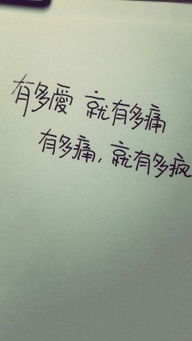 有多愛 就有多痛
有多痛，就有多疯